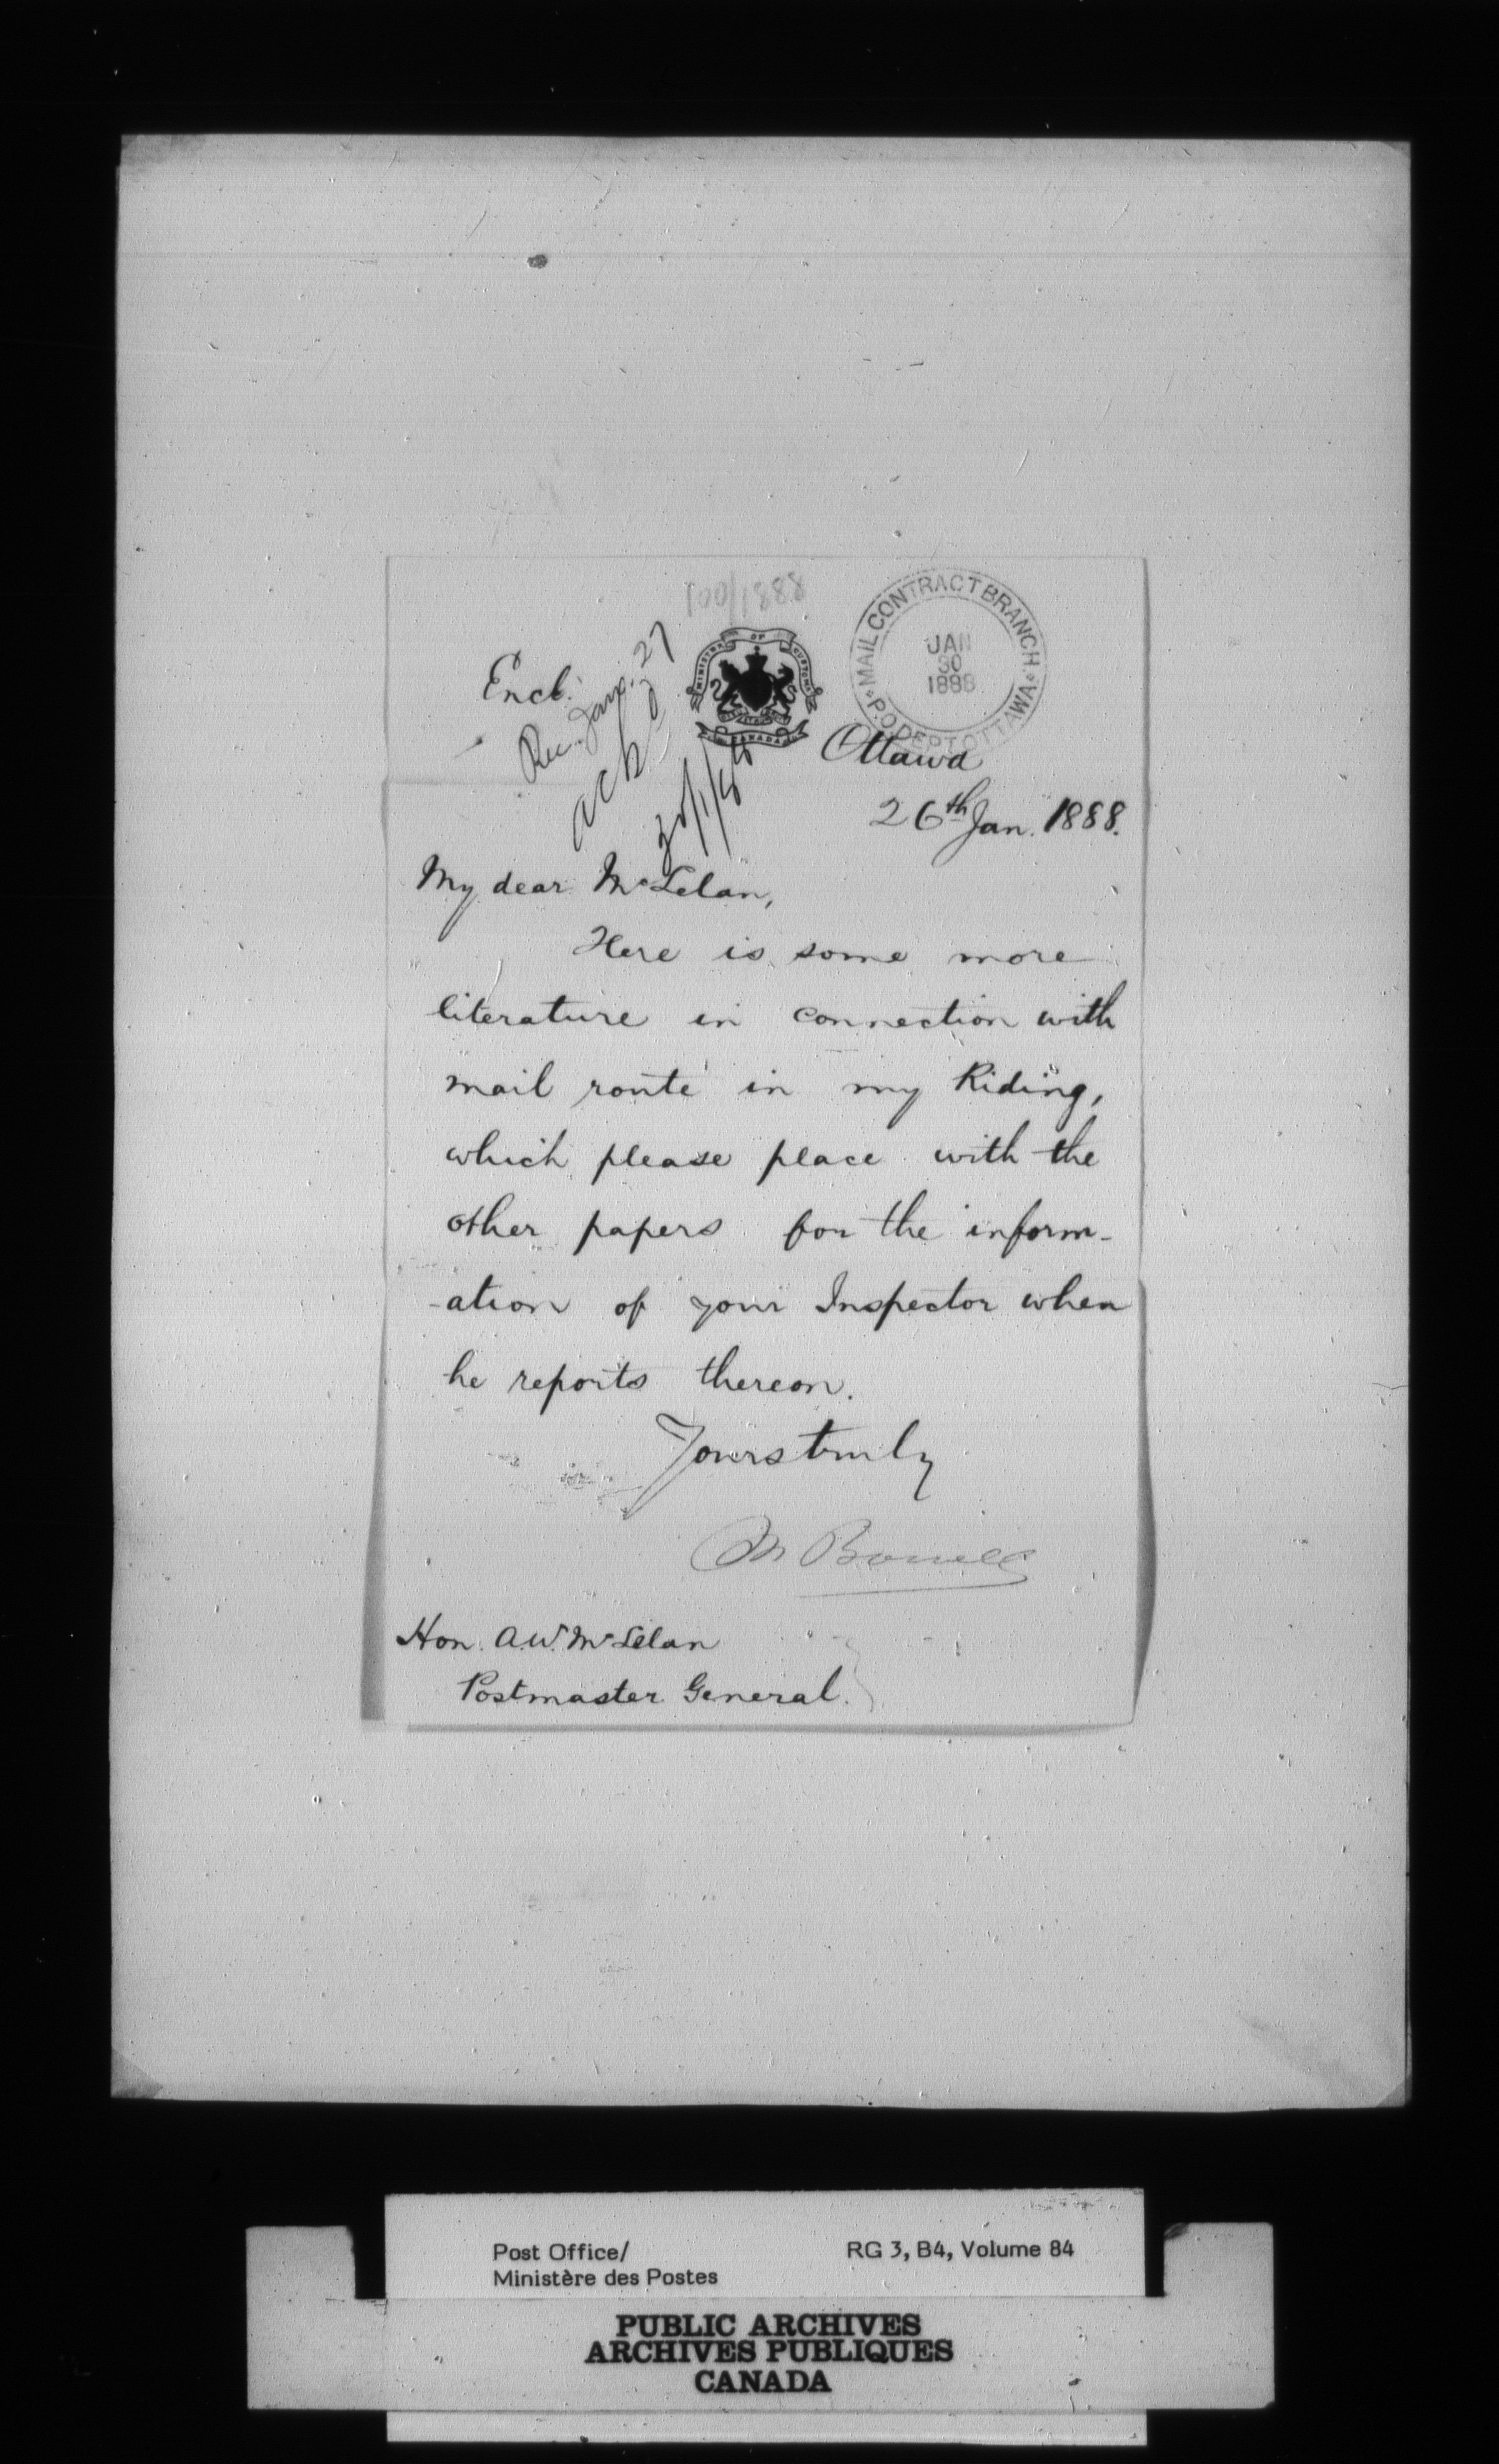 MAIL CONTRACT BRANCH.
JAN
30
1888
P.O. DEPT OTTAWA
Encl.
Rec. Jan. 27
ackd
MINISTER OF CUSTOMS
CANADA
Ottawa
26th Jan. 1888.
My dear McLelan,
Here is some more
literature in connection with
mail route in my Riding,
which please place with the
other papers for the inform-
-ation of your Inspector when
he reports thereon.
Yours truly
M Bowell
Hon. A.W. McLelan
Postmaster General.
Post Office/
Ministère des Postes
RG 3, B4, Volume 84
PUBLIC ARCHIVES
ARCHIVES PUBLIQUES
CANADA